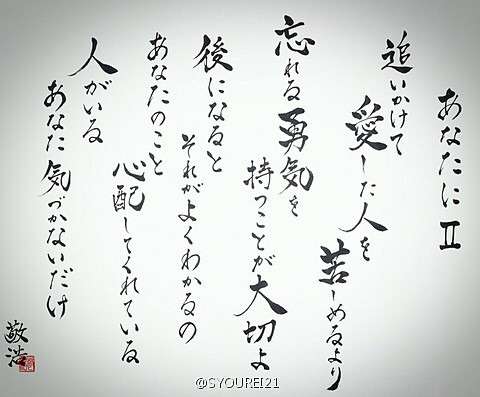 あなたにⅡ
追いかけて
愛した人を
苦しめるより
忘れる勇気を
持つことが大切よ
後になると
それがよくわかるの
あなたのこと
心配してくれている
人がいる
あなた気づかないだけ
敬浩
@SYOUREI21